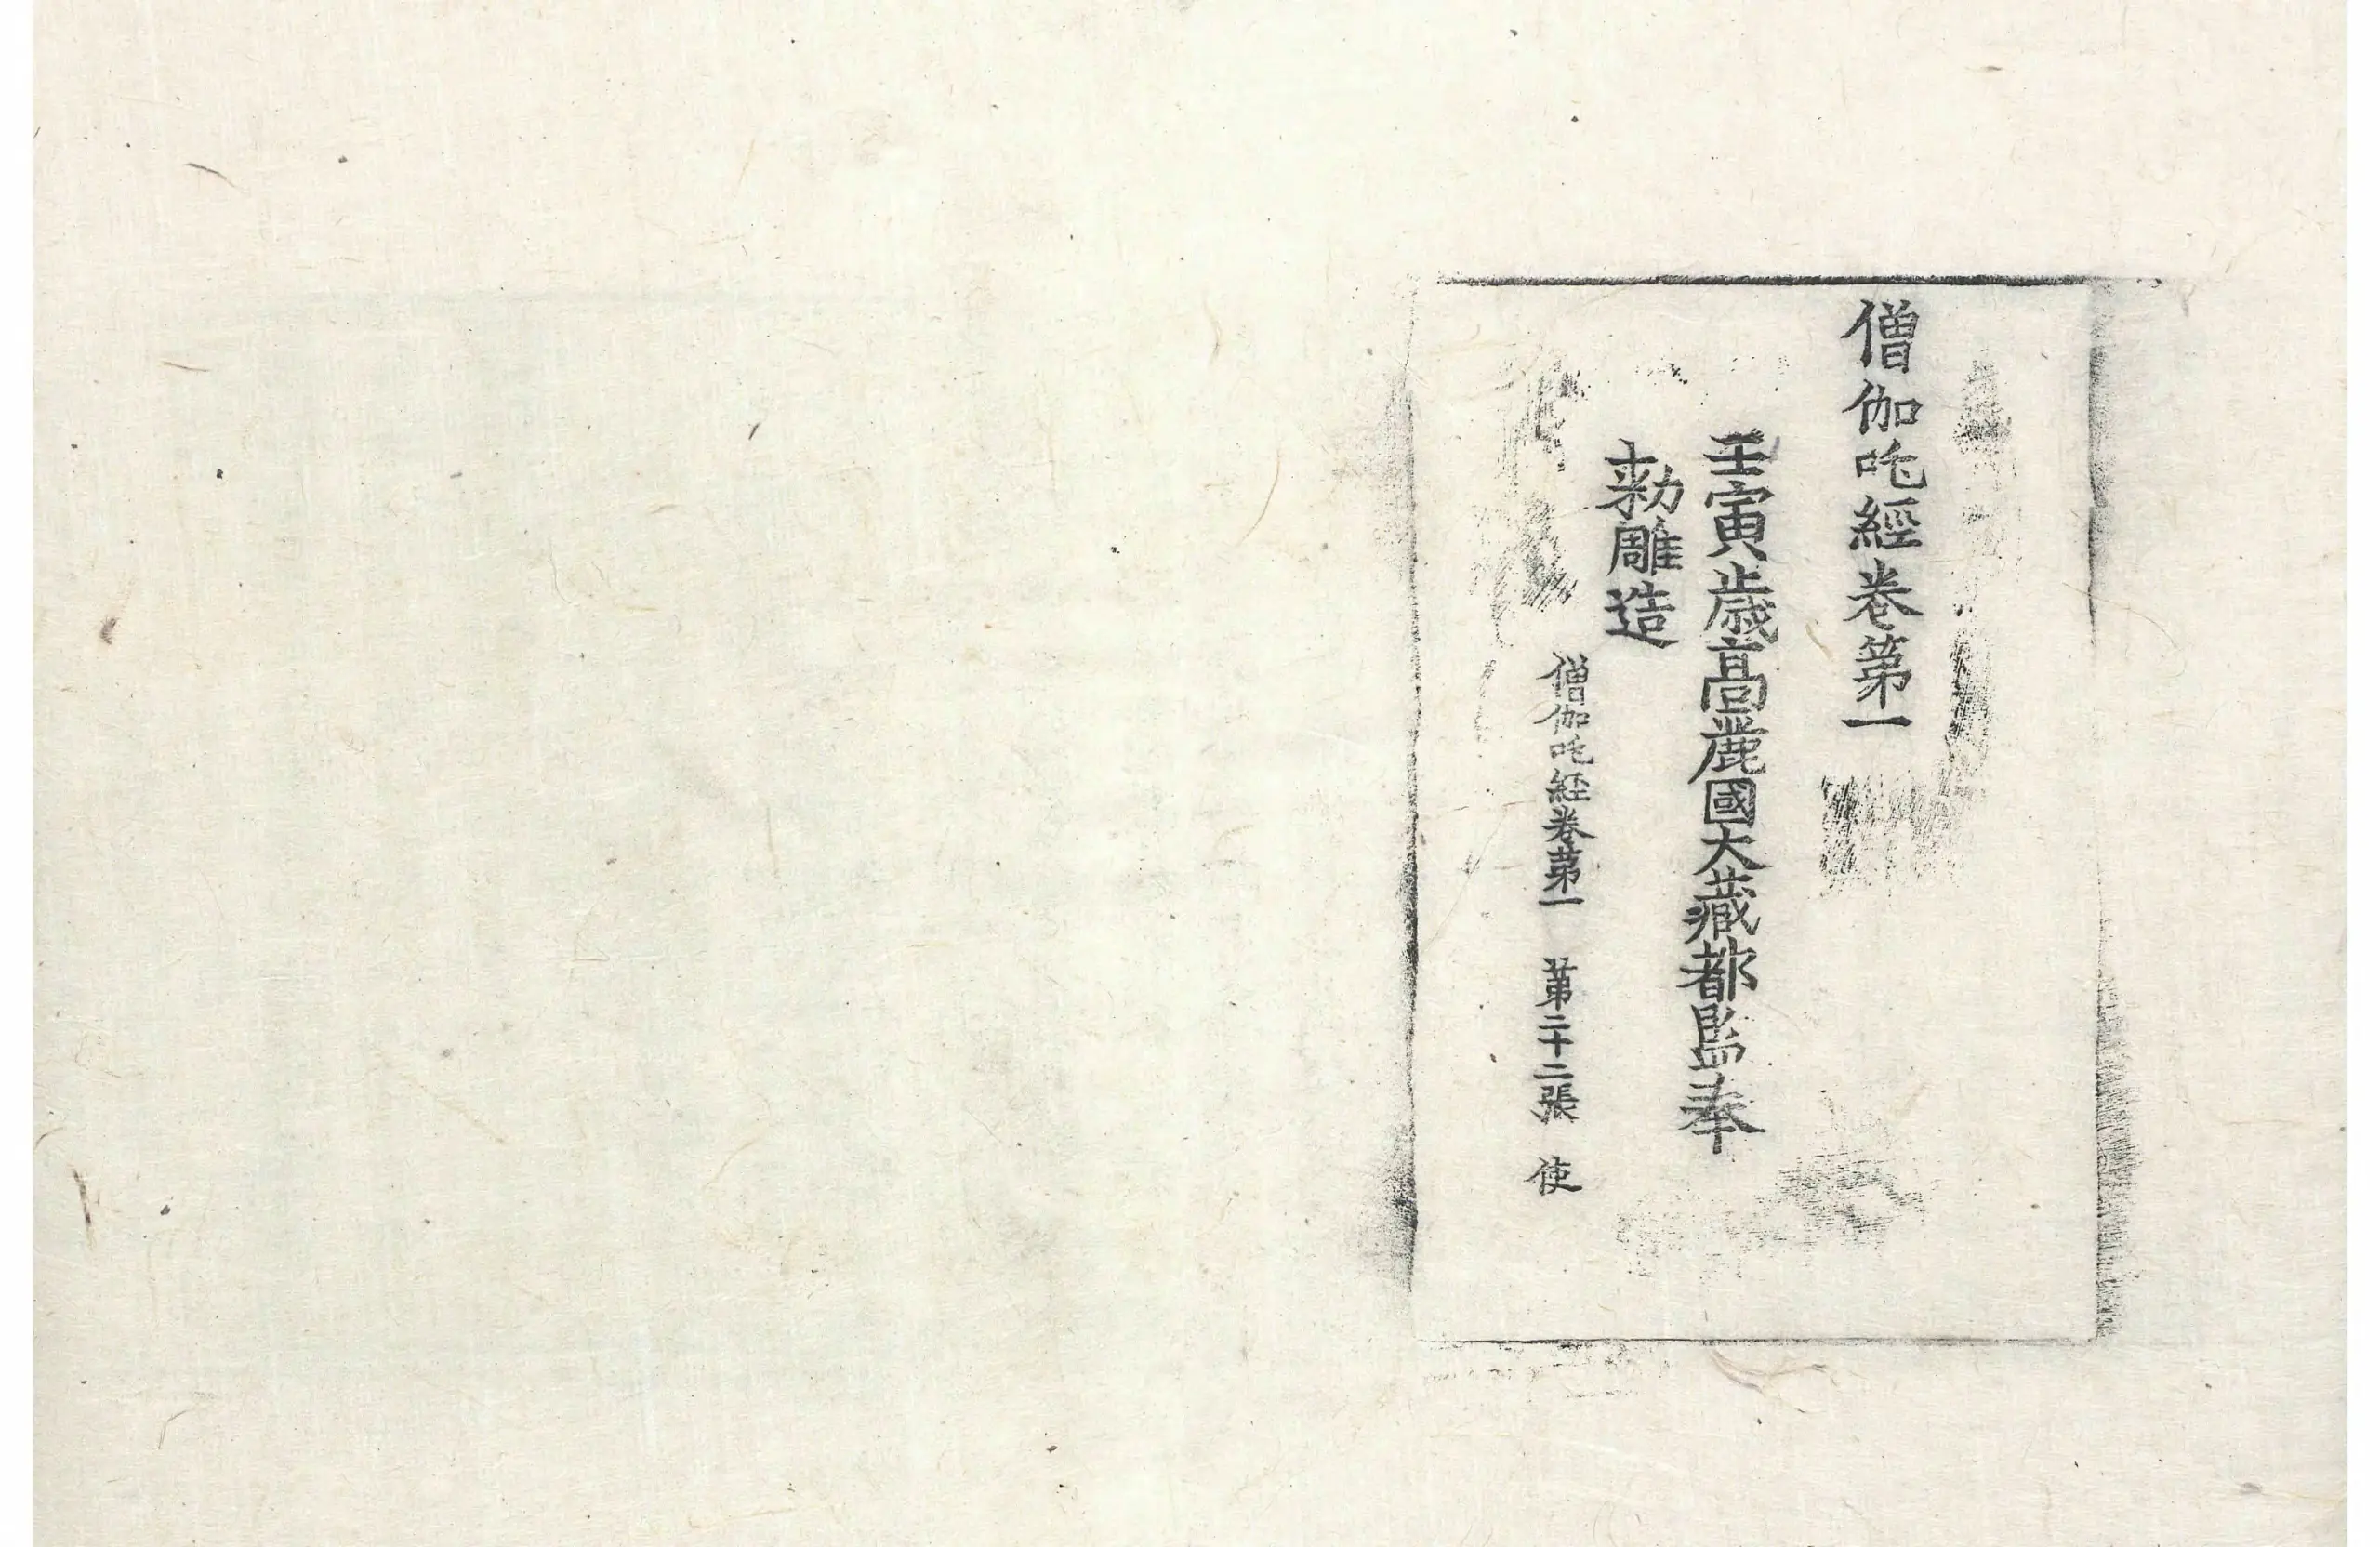 僧伽吒經卷第一
壬寅歲高麗國大藏都監奉
勅雕造
僧伽吒経卷第一 第二十二張 使